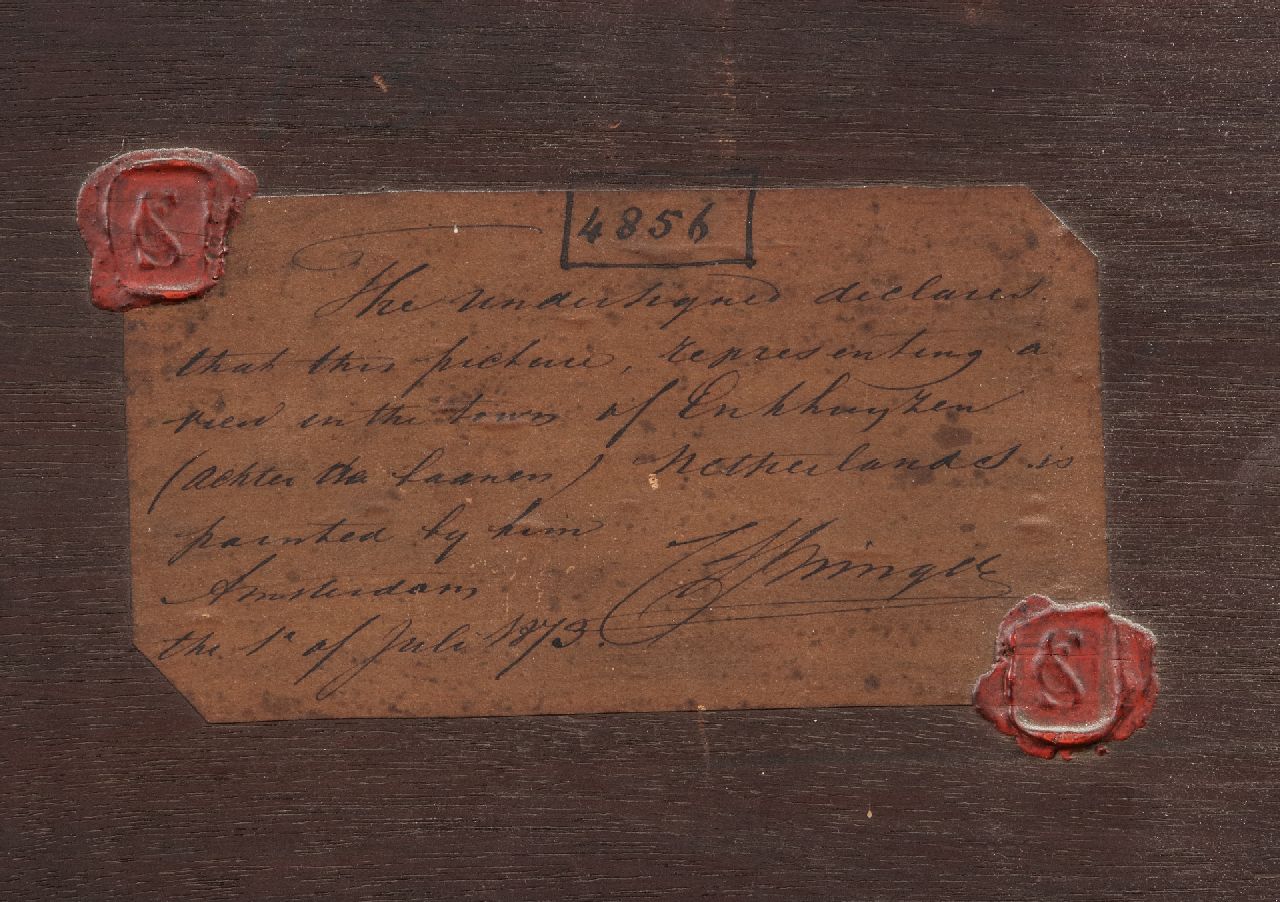 4856
The undersigned declares
that this picture, representing a
view in the town of Enkhuyzen
(Achter de Laanen) Netherlands is
painted by him
CSpringer
Amsterdam
the 1r of Juli 1873.